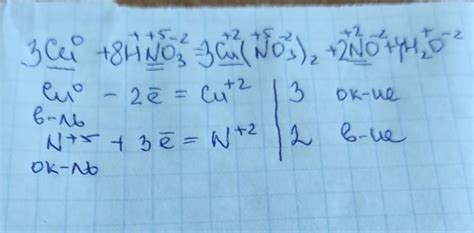 3Cu⁰ + 8H⁺N⁺⁵O₃⁻² = 3Cu⁺²(N⁺⁵O₃⁻²)₂ + 2N⁺²O⁻² + 4H₂⁺O⁻²
Cu⁰ - 2ē = Cu⁺² | 3 ок-ие
в-ль
N⁺⁵ + 3ē = N⁺² | 2 в-ие
ок-ль